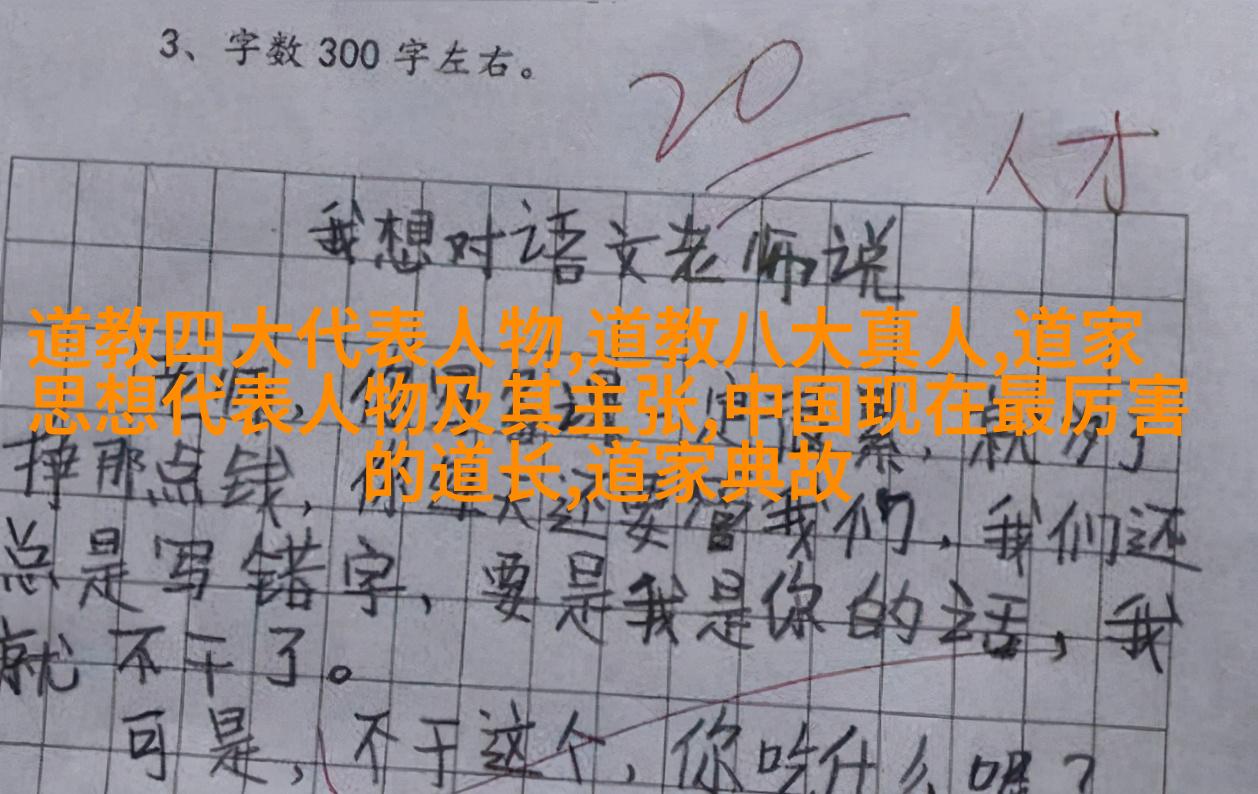 3、字数 300 字左右。
20
人才
我想对语文老师说
道教四大代表人物,道教八大真人,道家
思想代表人物及其主张,中国现在最厉害
的道长,道家典故
挣那点钱,你 还要管我们,我们还
总是写错字,要是我是你的话,我
就不干了。
可是,不干这个,你吃什么呢?